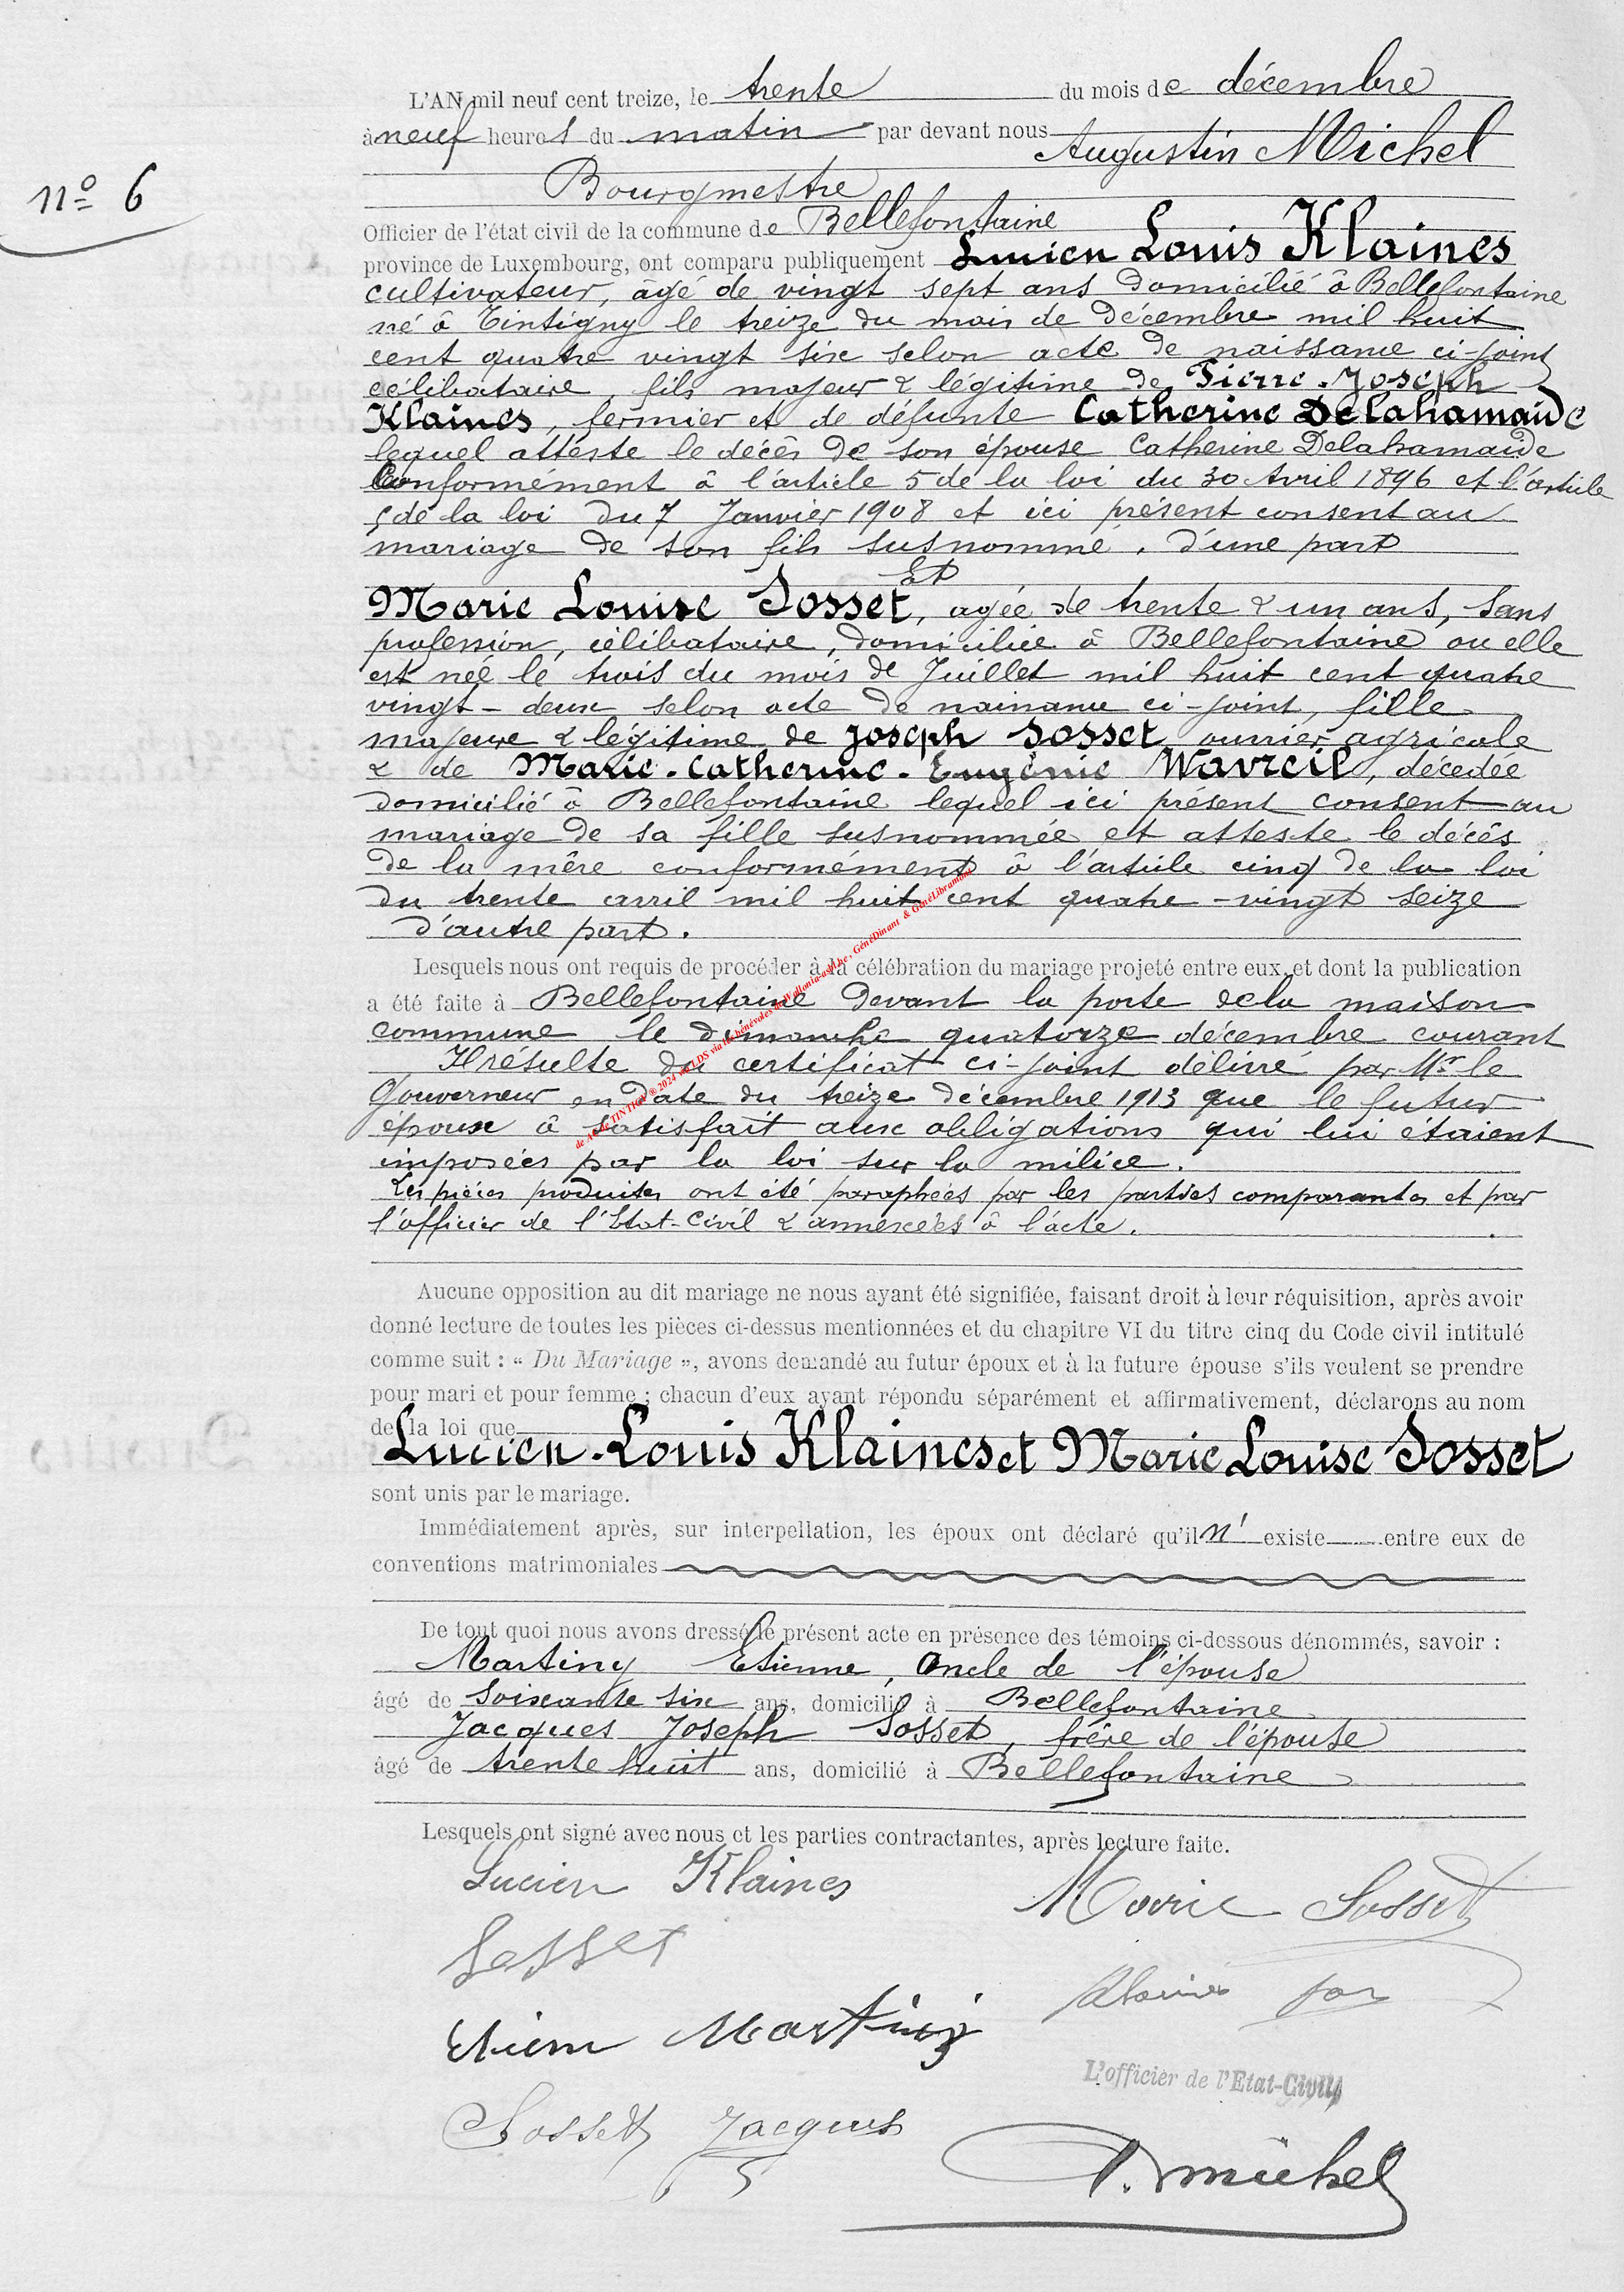 L'AN mil neuf cent treize, le trente du mois de décembre
à neuf heures du matin par devant nous
Augustin Michel
nº 6
Bourgmestre
Officier de l'état civil de la commune de Bellefontaine
province de Luxembourg, ont comparu publiquement Lucien Louis Klaines
cultivateur, âgé de vingt sept ans domicilié à Bellefontaine
né à Tintigny le treize du mois de décembre mil huit
cent quatre vingt six selon acte de naissance ci-joint
célibataire, fils majeur & légitime de Pierre-Joseph
Klaines, fermier et de défunte Catherine Delahamaide
lequel atteste le décès de son épouse Catherine Delahamaide
Conformément à l'article 5 de la loi du 30 Avril 1896 et l'article
5 de la loi du 7 Janvier 1908 et ici présent consent au
mariage de son fils susnommé, d'une part
Et
Marie Louise Sosset, agée de trente & un ans, sans
profession, célibataire, domiciliée à Bellefontaine ou elle
est née le trois du mois de Juillet mil huit cent quatre
vingt-deux selon acte de naissance ci-joint, fille
majeure & légitime de Joseph Sosset ouvrier agricole
& de Marie-Catherine-Eugénie Wavreil, décedée
domicilié à Bellefontaine lequel ici présent consent au
mariage de sa fille susnommée et atteste le décès
de la mère conformément à l'article cinq de la loi
du trente avril mil huit cent quatre-vingt seize
d'autre part.
Lesquels nous ont requis de procéder à la célébration du mariage projeté entre eux, et dont la publication
a été faite à Bellefontaine devant la porte de la maison
commune le dimanche quatorze décembre courant
Il résulte du certificat ci-joint délivré par Mr le
Gouverneur en date du treize décembre 1913 que le futur
époux à satisfait aux obligations qui lui étaient
imposées par la loi sur la milice.
Les pièces produites ont été paraphées par les parties comparantes et par
l'officier de l'Etat-Civil & annexées à l'acte.
de Ac de TINTIGNY ® 2024 via LDS via les bénévoles de Wallonia-asbl.be, GénéDinant & GénéLibramont
Aucune opposition au dit mariage ne nous ayant été signifiée, faisant droit à leur réquisition, après avoir
donné lecture de toutes les pièces ci-dessus mentionnées et du chapitre VI du titre cinq du Code civil intitulé
comme suit : « Du Mariage », avons demandé au futur époux et à la future épouse s'ils veulent se prendre
pour mari et pour femme ; chacun d'eux ayant répondu séparément et affirmativement, déclarons au nom
de la loi que
Lucien-Louis Klaines et Marie Louise Sosset
sont unis par le mariage.
Immédiatement après, sur interpellation, les époux ont déclaré qu'il n'existe entre eux de
conventions matrimoniales
De tout quoi nous avons dressé le présent acte en présence des témoins ci-dessous dénommés, savoir :
Martiny Etienne, Oncle de l'épouse
âgé de soixante six ans, domicilié à Bellefontaine
Jacques Joseph Sosset, frère de l'épouse
âgé de trente huit ans, domicilié à Bellefontaine
Lesquels ont signé avec nous et les parties contractantes, après lecture faite.
Lucien Klaines
Marie Sosset
Sosset
Klaines
Martiny
L'officier de l'Etat-Civil,
Sosset Jacques
A. Michel